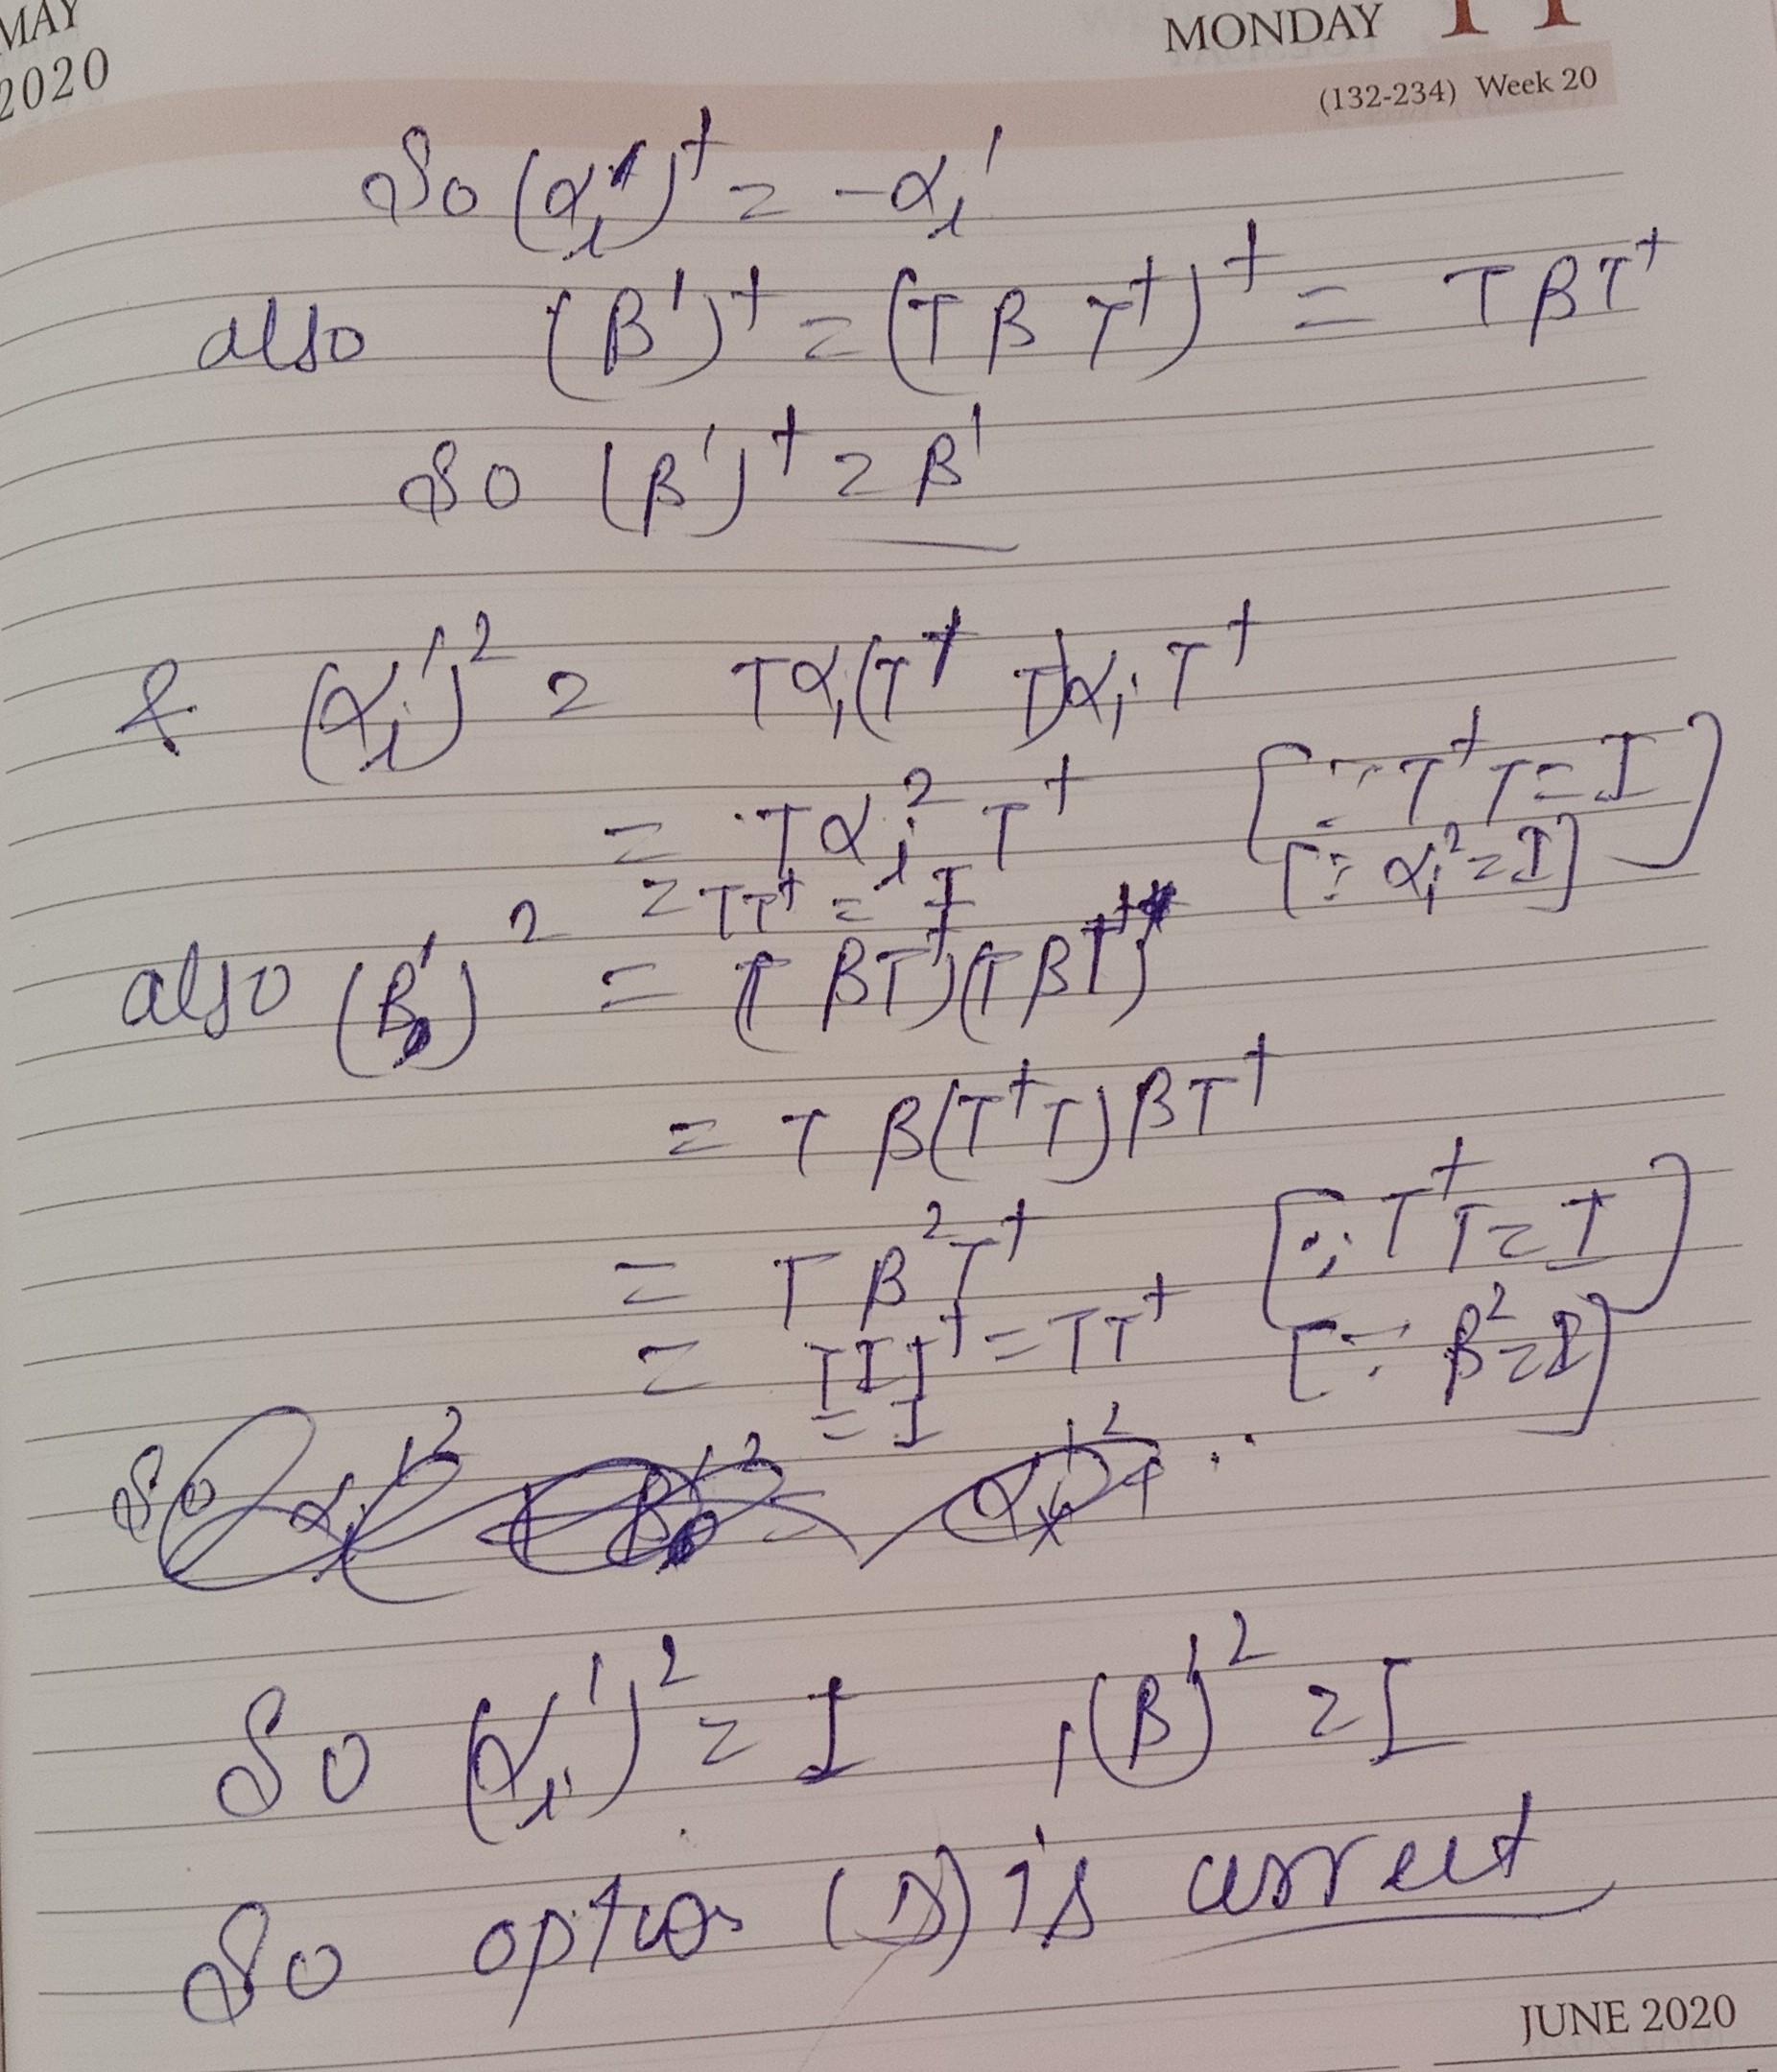 MAY
2020
MONDAY 11
(132-234) Week 20
So (αᵢ')† = -αᵢ'
also (β')† = (TβT†)† = TβT†
So (β')† = β'
& (αᵢ')² = Tαᵢ(T†T)αᵢT†
= Tαᵢ²T† [∵ T†T = I]
= TT† = I [∵ αᵢ² = I]
also (β')² = (TβT†)(TβT†)
= Tβ(T†T)βT†
= Tβ²T† [∵ T†T = I]
= TIT† = TT† [∵ β² = I]
= I
So (αᵢ')² = I, (β')² = I
So option (D) is correct
JUNE 2020